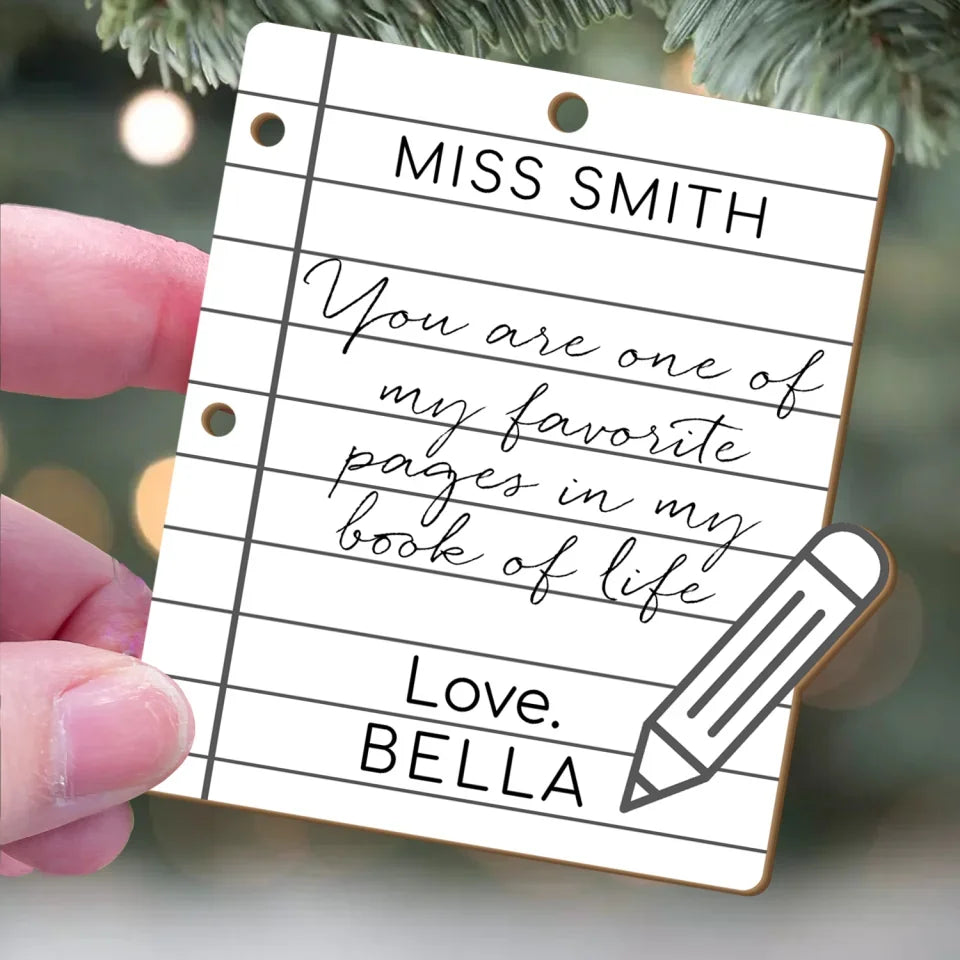 MISS SMITH
You are one of
my favorite
pages in my
book of life
Love.
BELLA